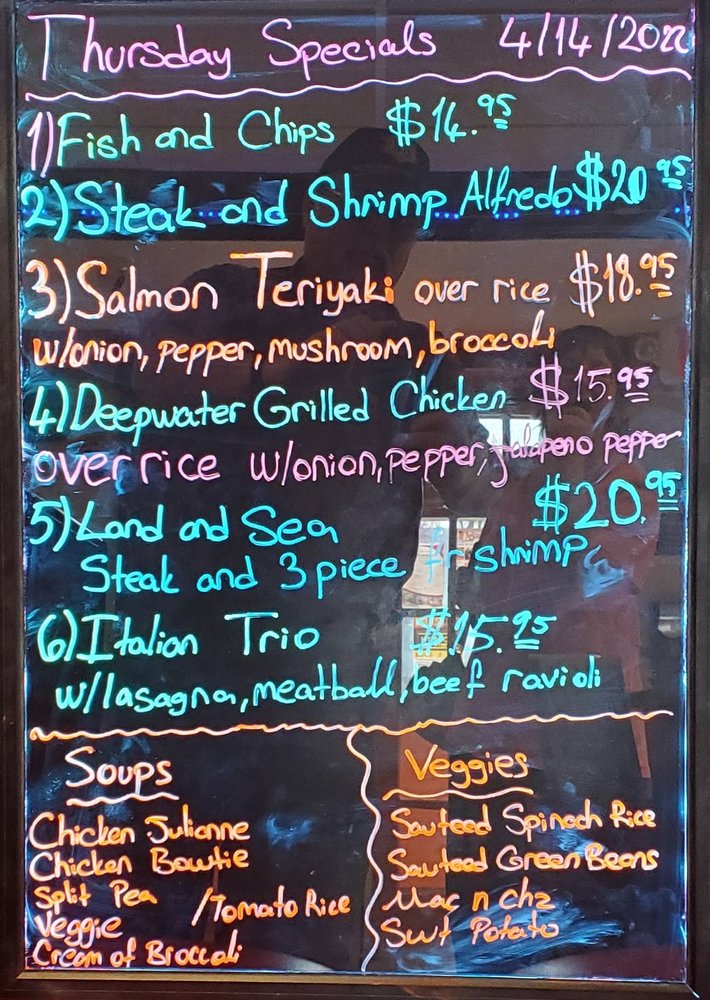 Thursday Specials 4/14/2022
1) Fish and Chips $14.95
2) Steak and Shrimp Alfredo $20.95
3) Salmon Teriyaki over rice $18.95
w/onion, pepper, mushroom, broccoli
4) Deepwater Grilled Chicken $15.95
over rice w/onion, pepper, jalapeno pepper
5) Land and Sea $20.95
Steak and 3 piece fr shrimp
6) Italian Trio $15.95
w/lasagna, meatball, beef ravioli
Soups
Chicken Julianne
Chicken Bowtie
Split Pea /Tomato Rice
Veggie
Cream of Broccoli
Veggies
Sauteed Spinach Rice
Sauteed Green Beans
Mac n chz
Swt Potato